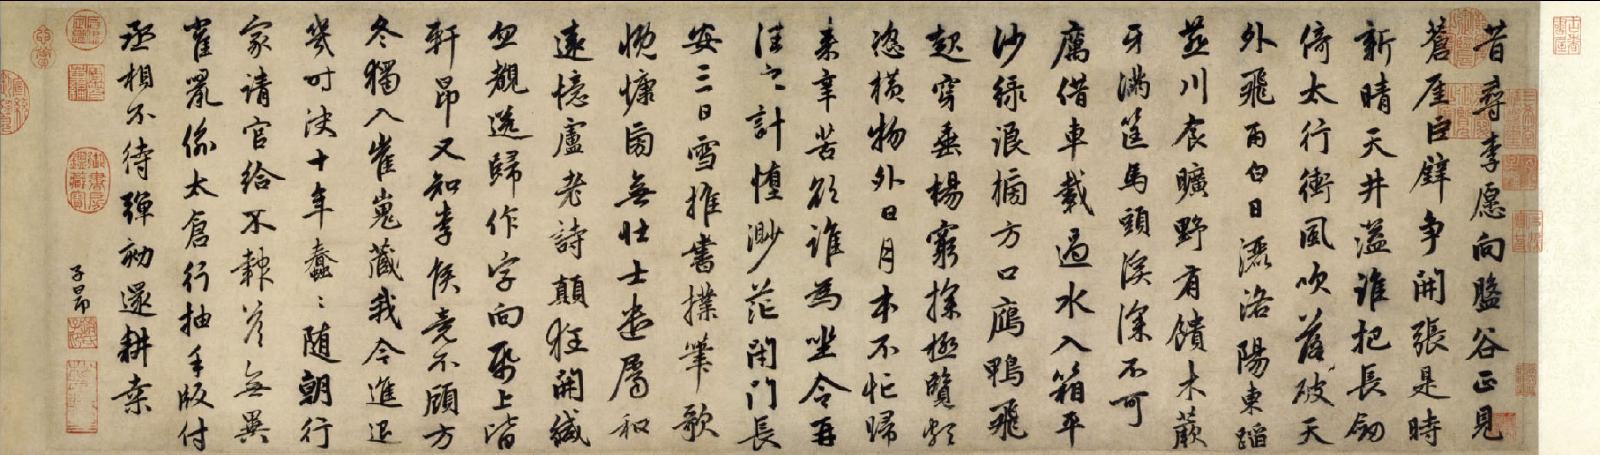 昔尋李愿向盤谷正見
蒼厓巨壁争開張是時
新晴天井溢誰把長劒
倚太行衝風吹落破天
外飛雨白日灑洛陽東蹈
燕川食曠野有饋木蕨
牙滿筐馬頭溪深不可
厲借車載過水入箱平
沙緑浪搒方口鴈鴨飛
起穿垂楊窮探極覽頗
恣橫物外日月本不忙歸
来辛苦欲誰為坐令再
往之計堕渺茫閉門長
安三日雪推書撲筆歌
慨慷旁無壯士遣屬和
遠憶盧老詩顛狂開緘
忽覩送歸作字向紙上皆
軒昂又知李侯竟不顧方
冬獨入崔嵬藏我今進退
幾时决十年蠢〻随朝行
家請官給不報荅無異
雀鼠偷太倉行抽手版付
丞相不待彈劾還耕桒
子昂